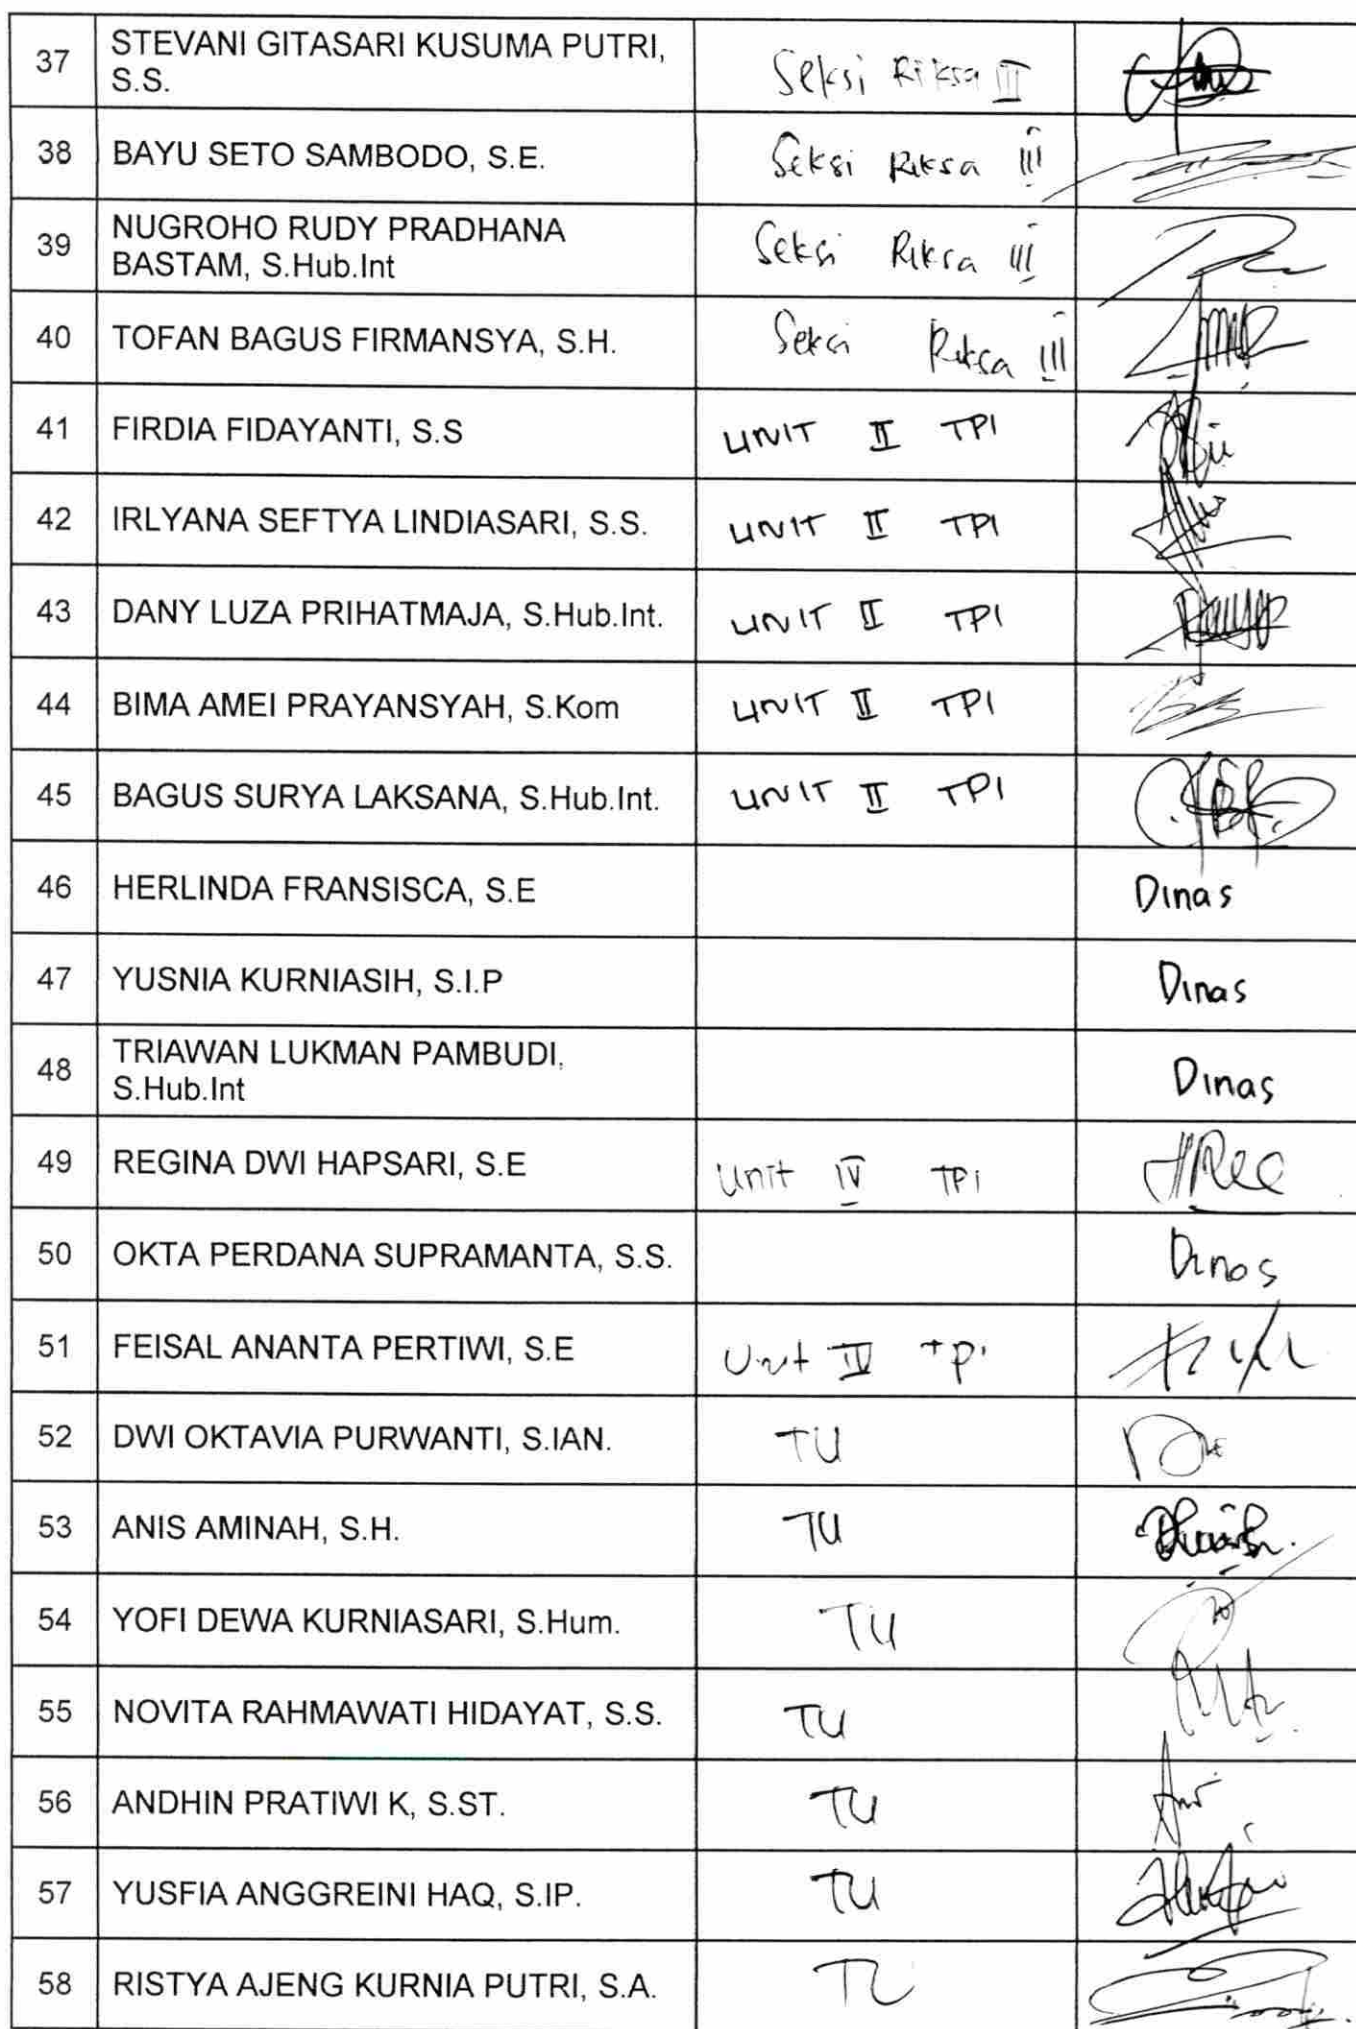 37 STEVANI GITASARI KUSUMA PUTRI, Seksi Riksa III
S.S.
38 BAYU SETO SAMBODO, S.E. Seksi Riksa III
39 NUGROHO RUDY PRADHANA Seksi Riksa III
BASTAM, S.Hub.Int
40 TOFAN BAGUS FIRMANSYA, S.H. Seksi Riksa III
41 FIRDIA FIDAYANTI, S.S UNIT II TPI
42 IRLYANA SEFTYA LINDIASARI, S.S. UNIT II TPI
43 DANY LUZA PRIHATMAJA, S.Hub.Int. UNIT II TPI
44 BIMA AMEI PRAYANSYAH, S.Kom UNIT II TPI
45 BAGUS SURYA LAKSANA, S.Hub.Int. UNIT II TPI
46 HERLINDA FRANSISCA, S.E Dinas
47 YUSNIA KURNIASIH, S.I.P Dinas
48 TRIAWAN LUKMAN PAMBUDI, Dinas
S.Hub.Int
49 REGINA DWI HAPSARI, S.E Unit IV TPi
50 OKTA PERDANA SUPRAMANTA, S.S. Dinas
51 FEISAL ANANTA PERTIWI, S.E Unit IV TPi
52 DWI OKTAVIA PURWANTI, S.IAN. TU
53 ANIS AMINAH, S.H. TU
54 YOFI DEWA KURNIASARI, S.Hum. TU
55 NOVITA RAHMAWATI HIDAYAT, S.S. TU
56 ANDHIN PRATIWI K, S.ST. TU
57 YUSFIA ANGGREINI HAQ, S.IP. TU
58 RISTYA AJENG KURNIA PUTRI, S.A. TU